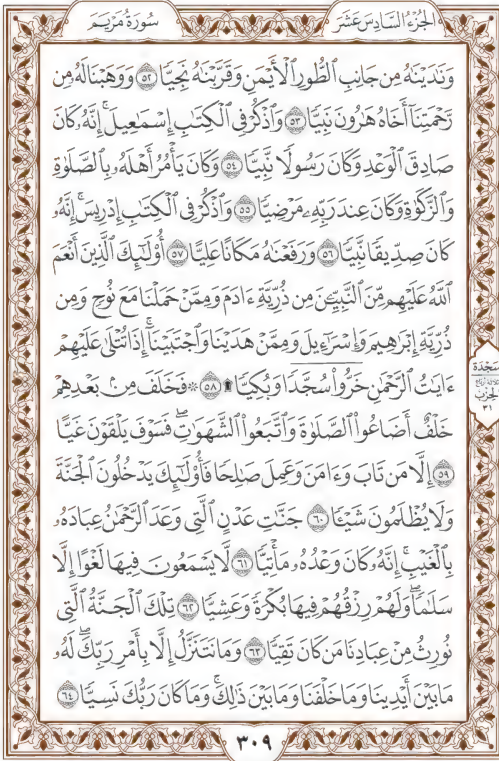 الجزء السادس عشر
سورة مريم
وَنَـٰدَيْنَـٰهُ مِن جَانِبِ ٱلطُّورِ ٱلْأَيْمَنِ وَقَرَّبْنَـٰهُ نَجِيًّا ٥٢ وَوَهَبْنَا لَهُۥ مِن
رَّحْمَتِنَآ أَخَاهُ هَـٰرُونَ نَبِيًّا ٥٣ وَٱذْكُرْ فِى ٱلْكِتَـٰبِ إِسْمَـٰعِيلَ ۚ إِنَّهُۥ كَانَ
صَادِقَ ٱلْوَعْدِ وَكَانَ رَسُولًا نَّبِيًّا ٥٤ وَكَانَ يَأْمُرُ أَهْلَهُۥ بِٱلصَّلَوٰةِ
وَٱلزَّكَوٰةِ وَكَانَ عِندَ رَبِّهِۦ مَرْضِيًّا ٥٥ وَٱذْكُرْ فِى ٱلْكِتَـٰبِ إِدْرِيسَ ۚ إِنَّهُۥ
كَانَ صِدِّيقًا نَّبِيًّا ٥٦ وَرَفَعْنَـٰهُ مَكَانًا عَلِيًّا ٥٧ أُو۟لَـٰٓئِكَ ٱلَّذِينَ أَنْعَمَ
ٱللَّهُ عَلَيْهِم مِّنَ ٱلنَّبِيِّـۧنَ مِن ذُرِّيَّةِ ءَادَمَ وَمِمَّنْ حَمَلْنَا مَعَ نُوحٍ وَمِن
ذُرِّيَّةِ إِبْرَٰهِيمَ وَإِسْرَٰٓءِيلَ وَمِمَّنْ هَدَيْنَا وَٱجْتَبَيْنَآ ۚ إِذَا تُتْلَىٰ عَلَيْهِمْ
ءَايَـٰتُ ٱلرَّحْمَـٰنِ خَرُّوا۟ سُجَّدًا وَبُكِيًّا ۩ ٥٨ ۞ فَخَلَفَ مِنۢ بَعْدِهِمْ
خَلْفٌ أَضَاعُوا۟ ٱلصَّلَوٰةَ وَٱتَّبَعُوا۟ ٱلشَّهَوَٰتِ ۖ فَسَوْفَ يَلْقَوْنَ غَيًّا
٥٩ إِلَّا مَن تَابَ وَءَامَنَ وَعَمِلَ صَـٰلِحًا فَأُو۟لَـٰٓئِكَ يَدْخُلُونَ ٱلْجَنَّةَ
وَلَا يُظْلَمُونَ شَيْـًٔا ٦٠ جَنَّـٰتِ عَدْنٍ ٱلَّتِى وَعَدَ ٱلرَّحْمَـٰنُ عِبَادَهُۥ
بِٱلْغَيْبِ ۚ إِنَّهُۥ كَانَ وَعْدُهُۥ مَأْتِيًّا ٦١ لَّا يَسْمَعُونَ فِيهَا لَغْوًا إِلَّا
سَلَـٰمًا ۖ وَلَهُمْ رِزْقُهُمْ فِيهَا بُكْرَةً وَعَشِيًّا ٦٢ تِلْكَ ٱلْجَنَّةُ ٱلَّتِى
نُورِثُ مِنْ عِبَادِنَا مَن كَانَ تَقِيًّا ٦٣ وَمَا نَتَنَزَّلُ إِلَّا بِأَمْرِ رَبِّكَ ۖ لَهُۥ
مَا بَيْنَ أَيْدِينَا وَمَا خَلْفَنَا وَمَا بَيْنَ ذَٰلِكَ ۚ وَمَا كَانَ رَبُّكَ نَسِيًّا ٦٤
سجدة
ثلاثة أرباع
الحزب
٣١
٣٠٩